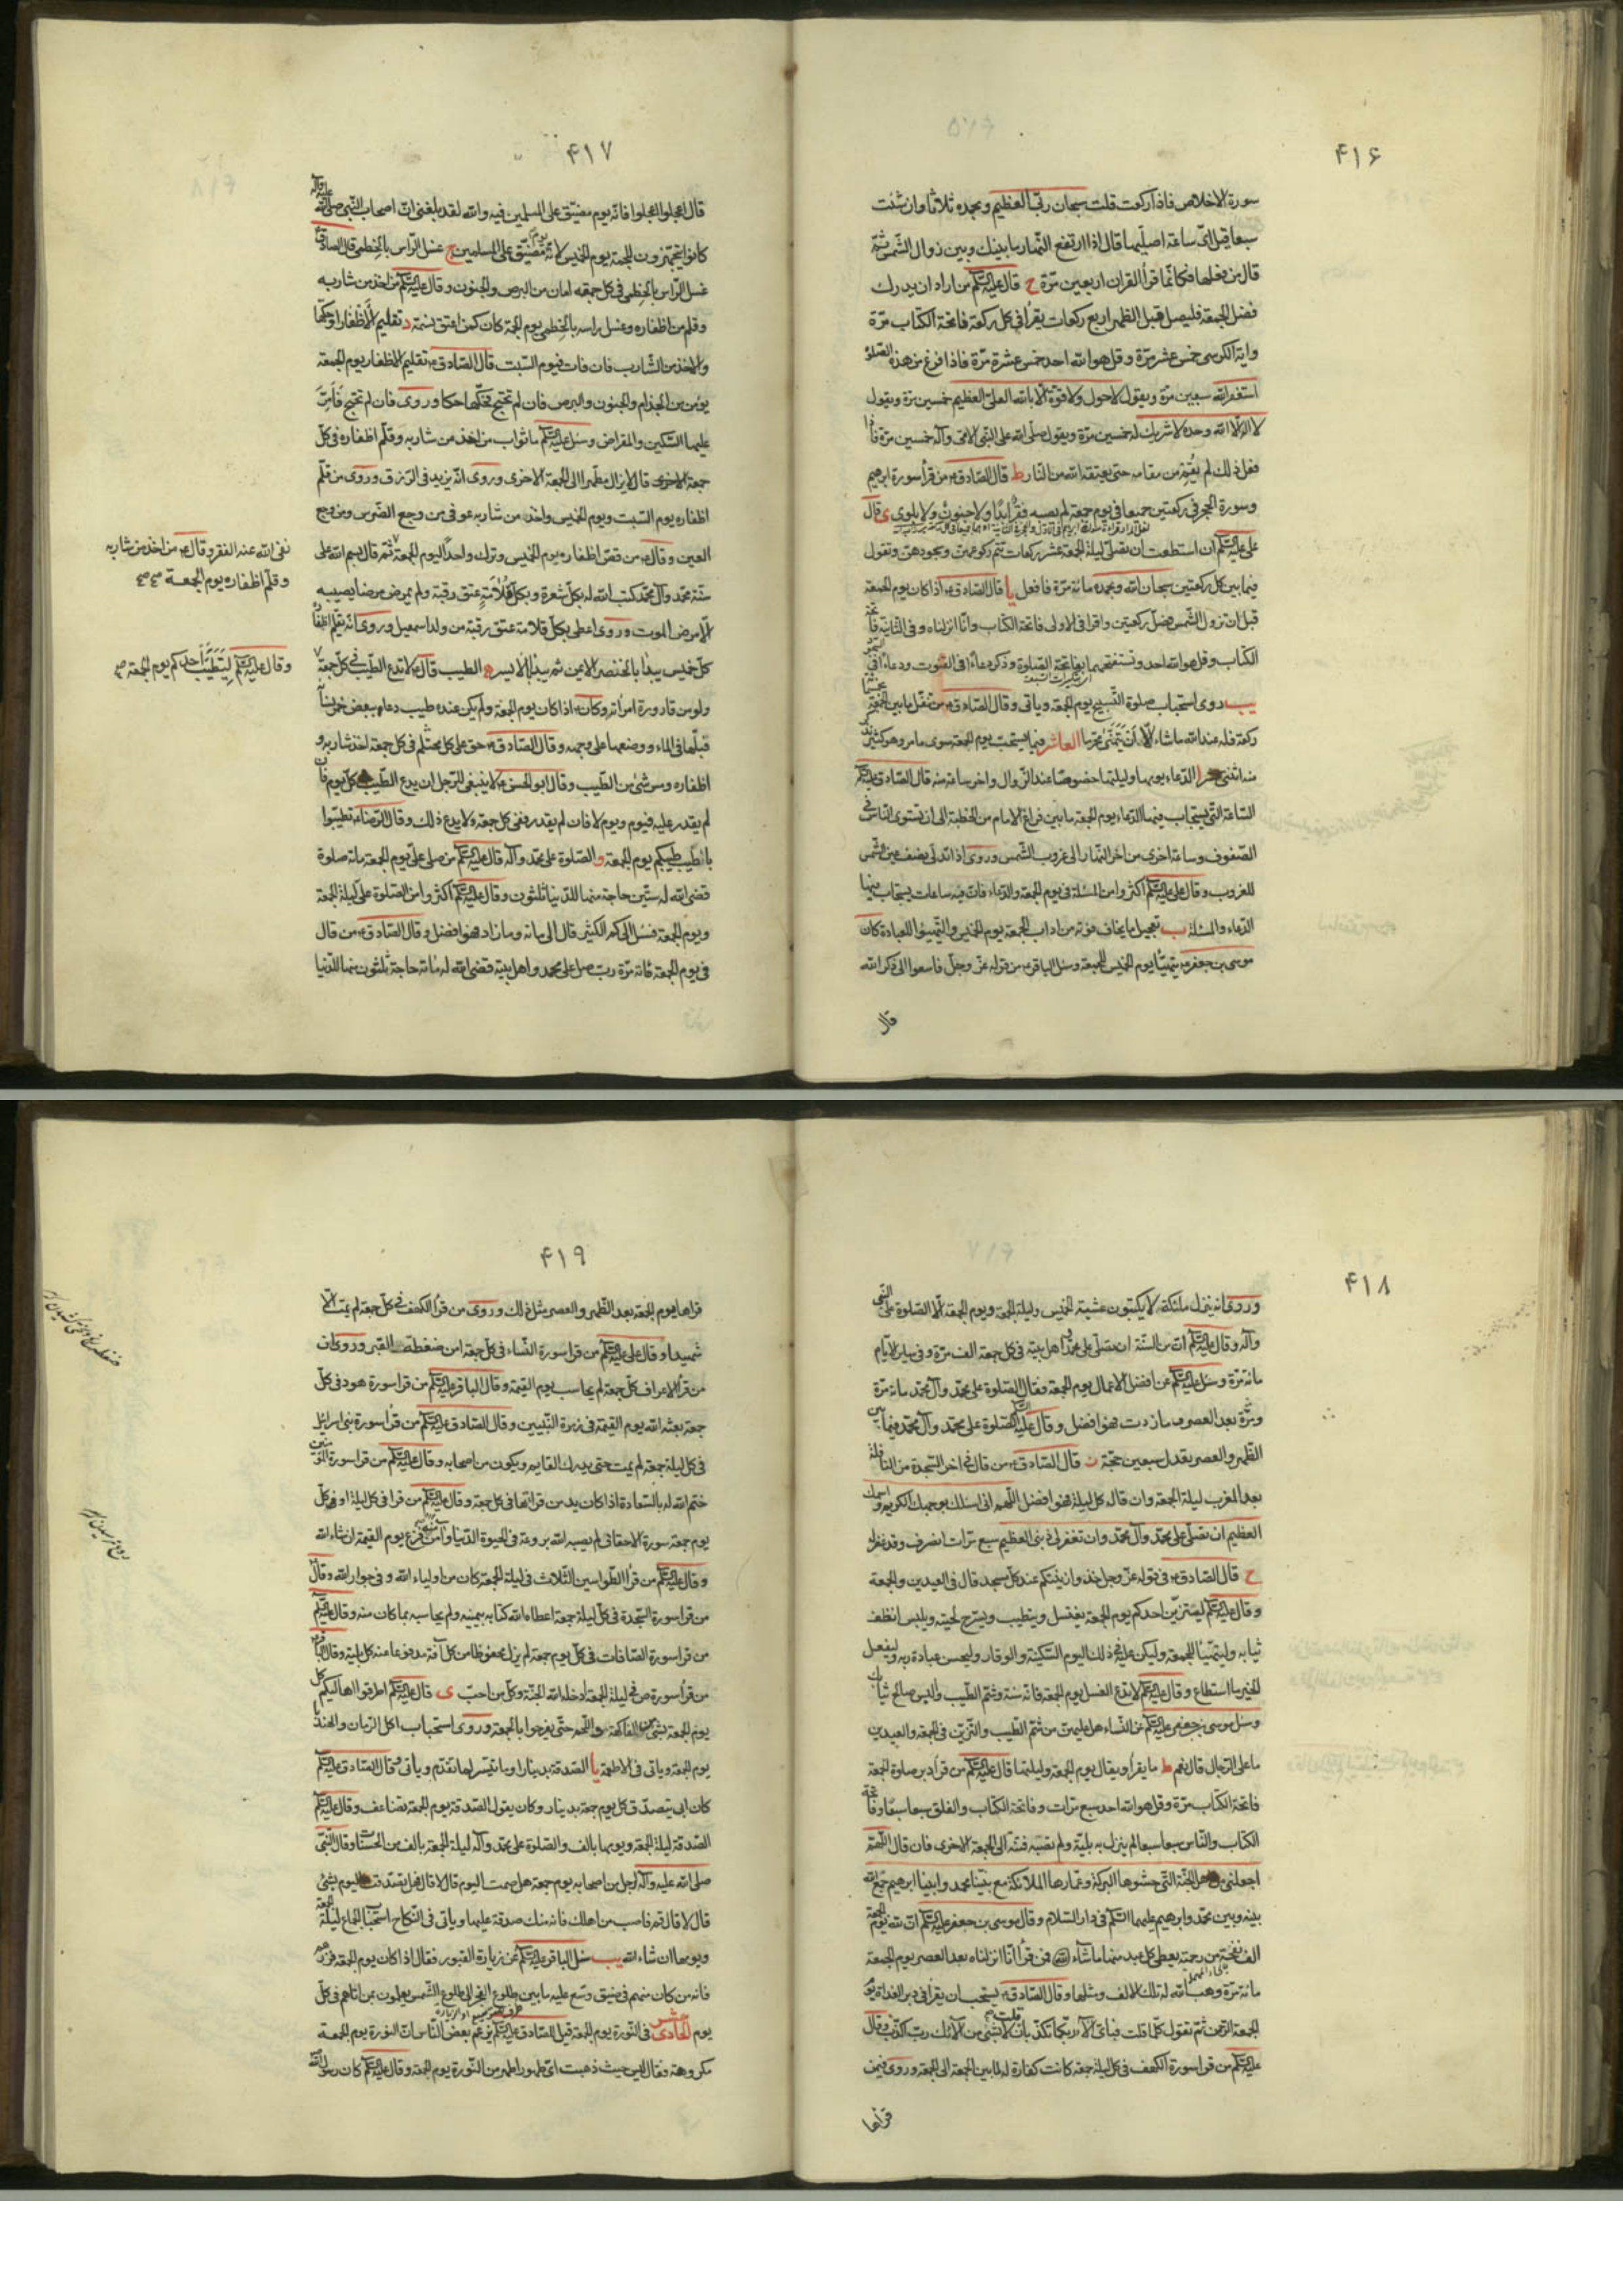 ۴۱۶
سورة الاخلاص فاذا ركعت قلت سبحان ربّي العظيم وبحمده ثلاثا وان شئت
سبعا قيل ايّ ساعة اصلّيها قال اذا ارتفع النّهار ما بينك وبين زوال الشّمس ثمّ
قال من فعلها فكانّما قرأ القران اربعين مرّة ح قال عليه السلام من اراد ان يدرك
فضل الجمعة فليصل قبل الظهر اربع ركعات يقرأ في كل ركعة فاتحة الكتاب مرّة
واية الكرسى خمس عشر مرّة وقل هو الله احد خمس عشرة مرّة فاذا فرغ من هذه الصلوة
استغفر الله سبعين مرّة ويقول لا حول ولا قوّة الّا بالله العلىّ العظيم خمسين مرّة ويقول
لا اله الّا الله وحده لا شريك له خمسين مرّة ويقول صلّى الله على النّبى الامّى وآله خمسين مرّة فاذا
فعل ذلك لم يقم من مقامه حتى يعتقه الله من النّار ط قال الصّادق ع من قرأ سورة ابرهيم
وسورة الحجر في ركعتين جميعا في يوم جمعة لم يصبه فقر ابدا ولا جنون ولا بلوى ى قال
على عليه السلام ان استطعت ان تصلّى ليلة الجمعة عشر ركعات تتم ركوعهنّ وسجودهنّ وتقول
فيما بين كل ركعتين سبحان الله وبحمده مائة مرّة فافعل يا قال الصّادق ع اذا كان يوم الجمعة
قبل ان تزول الشّمس فصلّ ركعتين واقرأ في الاولى فاتحة الكتاب وانّا انزلناه وفي الثّانية فاتحة
الكتاب وقل هو الله احد وتستفتحهما بفاتحة الصّلوة وذكر دعاءً في القنوت ودعاءً في
يب روى استحباب صلوة التّسبيح يوم الجمعة وياتى وقال الصّادق ع من تنفّل ما بين الجمعة
ركعة فله عند الله ما شاء الّا ان يتمنّى محرّما العاشر فيما يستحبّ يوم الجمعة سوى ما مر وهو كثير
منه اثنى عشر ا الدّعاء يومها وليلتها خصوصا عند الزّوال واخر ساعة منه قال الصّادق عليه السلام
السّاعة التى يستجاب فيها الدّعاء يوم الجمعة ما بين فراغ الامام من الخطبة الى ان تستوى النّاس في
الصّفوف وساعة اخرى من اخر النّهار الى غروب الشّمس وروى اذا تدلّى نصف عين الشمس
للغروب وقال على عليه السلام اكثروا من المسئلة في يوم الجمعة والدّعاء فانّ فيه ساعات يستجاب فيها
الدّعاء والمسئلة ب تعجيل ما يخاف فوته من اداب الجمعة يوم الخميس والتّهيّؤا للعبادة كان
موسى بن جعفر ع يتهيّأ يوم الخميس للجمعة وسئل الباقر ع من قوله عزّ وجلّ فاسعوا الى ذكر الله
قال
۴۱۷
قال اعملوا وعجّلوا فانّه يوم مضيّق على المسلمين فيه والله لقد بلغنى انّ اصحاب النّبى صلى الله عليه وآله
كانوا يتجهّزون للجمعة يوم الخميس لانّه يوم مضيّق على المسلمين ج غسل الرّاس بالخطمى قال الصادق ع
غسل الرّاس بالخطمى في كل جمعة امان من البرص والجنون وقال عليه السلام من اخذ من شاربه
وقلم من اظفاره وغسل راسه بالخطمى يوم الجمعة كان كمن اعتق نسمة د تقليم الأظفار او حكّها
والاخذ من الشّارب فان فات فيوم السّبت قال الصّادق ع تقليم الاظفار يوم الجمعة
يؤمن من الجذام والجنون والبرص فان لم تحتج تحكّها حكا وروى فان لم تحتج فأمرّ
عليها السّكين والمقراض وسئل عليه السلام ما ثواب من اخذ من شاربه وقلّم اظفاره في كلّ
جمعة قال لا يزال مطهّرا الى الجمعة الاخرى وروى انّه يزيد في الرّزق وروى من قلّم
اظفاره يوم السّبت ويوم الخميس واخذ من شاربه عوفى من وجع الضّرس ووجع
العين وقال ع من قصّ اظفاره يوم الخميس وترك واحداً ليوم الجمعة ثمّ قال بسم الله على
سنّة محمّد وآل محمّد كتب الله له بكلّ شعرة وبكلّ قلامة عتق رقبة ولم يمرض مرضا يصيبه
الّا مرض الموت وروى اعطى بكلّ قلامة عتق رقبة من ولد اسمعيل وروى انّه تقليم اظفار
كلّ خميس يبدأ بالخنصر الايمن ثم يبدأ بالايسر ه الطيب قال ع لا تدع الطّيب في كلّ جمعة
ولو من قارورة امرأته وكان ع اذا كان يوم الجمعة ولم يكن عنده طيب دعا ببعض خمر نسائه
فبلّها في الماء ووضعها على وجهه وقال الصّادق ع حق على كل محتلم في كل جمعة اخذ شاربه و
اظفاره ومسّ شئ من الطّيب وقال ابو الحسن ع لا ينبغى للرّجل ان يدع الطّيب كلّ يوم فان
لم يقدر عليه فيوم ويوم لا فان لم يقدر ففى كل جمعة ولا يدع ذلك وقال الرّضا ع تطيّبوا
باطيب طيبكم يوم الجمعة و الصّلوة على محمّد وآله قال عليه السلام من صلى علىّ يوم الجمعة مائة صلوة
قضى الله له ستّين حاجة منها للدّنيا ثلثون وقال عليه السلام اكثروا من الصّلوة علىّ ليلة الجمعة
ويوم الجمعة فسئل الى كم الكثير قال الى مائة وما زاد فهو افضل وقال الصّادق ع من قال
في يوم الجمعة مائة مرّة ربّ صل على محمد واهل بيته قضى الله له مائة حاجة ثلثون منها للدّنيا
نفى الله عنه الفقر وقال ع من اخذ من شاربه
وقلّم اظفاره يوم الجمعة
وقال عليه السلام ليتطيّب احدكم يوم الجمعة
۴۱۸
وروى انه ينزل ملئكة لا يكتبون عشيّة الخميس وليلة الجمعة ويوم الجمعة الّا الصّلوة على النّبى
وآله وقال عليه السلام انّ من السّنّة ان تصلّى على محمّد واهل بيته في كل جمعة الف مرّة وفي ساير الايّام
مائة مرّة وسئل عليه السلام عن افضل الاعمال يوم الجمعة فقال الصّلوة على محمّد وآل محمّد مائة مرّة
ومرّة بعد العصر وما زدت فهو افضل وقال عليه السلام الصّلوة على محمّد وآل محمّد فيما بين
الظّهر والعصر يعدل سبعين حجّة ز قال الصّادق ع من قال في اخر السّجدة من النافلة
بعد المغرب ليلة الجمعة وان قاله كل ليلة فهو افضل اللّهم انى اسئلك بوجهك الكريم واسمك
العظيم ان تصلّى على محمّد وآل محمّد وان تغفر لى ذنبى العظيم سبع مرّات انصرف وقد غفر له
ح قال الصّادق ع في قوله عزّ وجل خذوا زينتكم عند كل مسجد قال في العيدين والجمعة
وقال عليه السلام ليتزيّن احدكم يوم الجمعة يغتسل ويتطيب ويسرّح لحيته ويلبس انظف
ثيابه وليتهيّأ للجمعة وليكن عليه في ذلك اليوم السّكينة والوقار وليحسن عبادة ربه وليفعل
الخير ما استطاع وقال عليه السلام لا تدع الغسل يوم الجمعة فانّه سنة وشمّ الطّيب والبس صالح ثيابك
وسئل موسى بن جعفر عليه السلام عن النّساء هل عليهنّ من شمّ الطّيب والتّزيّن في الجمعة والعيدين
ما على الرّجال قال نعم ط ما يقرأ ويقال يوم الجمعة وليلتها قال عليه السلام من قرأ دبر صلوة الجمعة
فاتحة الكتاب مرّة وقل هو الله احد سبع مرّات وفاتحة الكتاب والفلق سبعا وفاتحة
الكتاب والنّاس سبعا لم ينزل به بليّة ولم تصبه فتنة الى الجمعة الاخرى فان قال اللّهمّ
اجعلنى من اهل الجنّة التّى حشوها البركة وعمّارها الملائكة مع نبيّنا محمد وابينا ابرهيم جمع الله
بينه وبين محمّد وابرهيم عليهما السّلم في دار السّلام وقال موسى بن جعفر عليه السلام انّ لله يوم الجمعة
الف نفحة من رحمته يعطى كل عبد منها ما شاء فمن قرأ انّا انزلناه بعد العصر يوم الجمعة
مائة مرّة وهب الله له تلك الالف ومثلها وقال الصّادق ع يستحب ان يقرأ في دبر الغداة يوم
الجمعة الرّحمن ثمّ تقول كلّما قلت فباىّ آلاء ربّكما تكذّبان لا بشئ من آلائك ربّ اكذّب وقال
عليه السلام من قرأ سورة الكهف في كل ليلة جمعة كانت كفارة له ما بين الجمعة الى الجمعة وروى فيمن
قرأها
۴۱۹
قراها يوم الجمعة بعد الظّهر والعصر مثل ذلك وروى من قرأ الكهف في كلّ جمعة لم يمت الّا
شهيدا وقال على عليه السلام من قرأ سورة النّساء في كل جمعة امن ضغطة القبر وروى ان
من قرأ الاعراف كلّ جمعة لم يحاسب يوم القيمة وقال الباقر عليه السلام من قرأ سورة هود في كلّ
جمعة بعثه الله يوم القيمة في زمرة النّبيين وقال الصّادق عليه السلام من قرأ سورة بنى اسرائيل
في كل ليلة جمعة لم يمت حتى يدرك القايم ويكون من اصحابه وقال عليه السلام من قرأ سورة المؤمنين
ختم الله له بالسّعادة اذا كان يدمن قرائتها في كل جمعة وقال عليه السلام من قرأ في كل ليلة او في كلّ
يوم جمعة سورة الاحقاف لم يصبه الله بروعة في الحيوة الدّنيا وآمنه من فزع يوم القيمة ان شاء الله
وقال عليه السلام من قرأ الطّواسين الثّلاث في ليلة الجمعة كان من اولياء الله وفي جوار الله وقال
من قرأ سورة السّجدة في كلّ ليلة جمعة اعطاه الله كتابه بيمينه ولم يحاسبه بما كان منه وقال عليه السلام
من قرأ سورة الصّافات في كلّ يوم جمعة لم يزل محفوظا من كل آفة مدفوعا عنه كل بلية وقال الباقر ع
من قرأ سورة ص في ليلة الجمعة ادخله الله الجنّة وكلّ من احبّ ى قال عليه السلام اطرفوا اهاليكم كل
يوم الجمعة بشئ من الفاكهة واللّحم حتّى يفرحوا بالجمعة وروى استحباب اكل الرّمان والهندبا
يوم الجمعة وياتى في الاطعمة يا الصّدقة بدينار او بما تيسّر لما تقدّم وياتى وقال الصّادق عليه السلام
كان ابى يتصدّق كل يوم جمعة بدينار وكان يقول الصّدقة يوم الجمعة تضاعف وقال عليه السلام
الصّدقة ليلة الجمعة ويومها بالف والصّلوة على محمّد وآله ليلة الجمعة بالف من الحسنات وقال النّبى
صلى الله عليه وآله لرجل من اصحابه يوم جمعة هل صمت اليوم قال لا قال فهل تصدّقت اليوم بشئ
قال لا قال قم فاصب من اهلك فانه منك صدقة عليها وياتى في النّكاح استحباب الجماع ليلة الجمعة
ويومها ان شاء الله يب سئل الباقر عليه السلام عن زيارة القبور فقال اذا كان يوم الجمعة فزرهم
فانه من كان منهم في ضيق وسّع عليه ما بين طلوع الفجر الى طلوع الشّمس يعلمون بمن اتاهم في كلّ
يوم الحادى عشر في النّورة يوم الجمعة قيل للصّادق عليه السلام يزعم بعض النّاس انّ النّورة يوم الجمعة
مكروهة فقال ليس حيث ذهبت اىّ طهور اطهر من النّورة يوم الجمعة وقال عليه السلام كان رسول الله